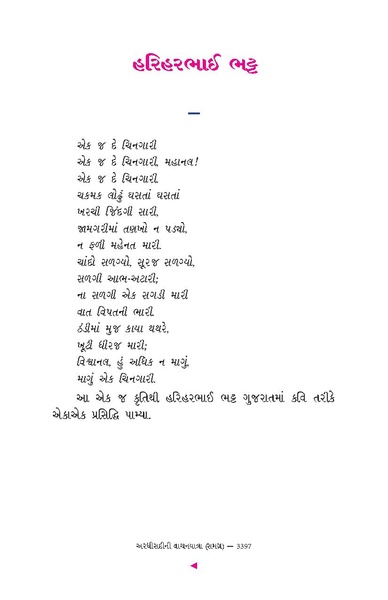 હરિહરભાઈ ભટ્ટ
એક જ દે ચિનગારી
એક જ દે ચિનગારી, મહાનલ!
એક જ દે ચિનગારી.
ચકમક લોઢું ઘસતાં ઘસતાં
ખરચી જિંદગી સારી,
જામગરીમાં તણખો ન પડયો,
ન ફળી મહેનત મારી.
ચાંદો સળગ્યો, સૂરજ સળગ્યો,
સળગી આભ-અટારી;
ના સળગી એક સગડી મારી
વાત વિપતની ભારી.
ઠંડીમાં મુજ કાયા થથરે,
ખૂટી ધીરજ મારી;
વિશ્વાનલ, હું અધિક ન માગું,
માગું એક ચિનગારી.
આ એક જ કૃતિથી હરિહરભાઈ ભટ્ટ ગુજરાતમાં કવિ તરીકે
એકાએક પ્રસિદ્ધિ પામ્યા.
અરધીસદીની વાચનયાત્રા (સમગ્ર) — 3397